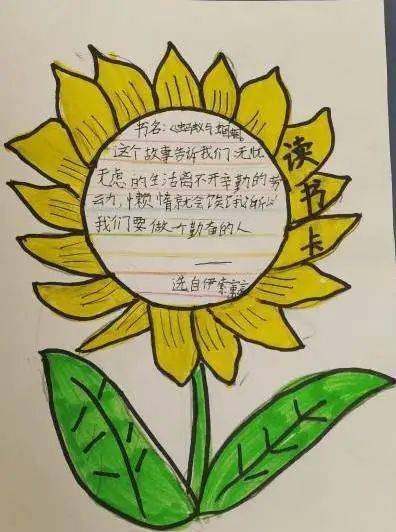 书名:《蚂蚁与蝈蝈》
这个故事告诉我们:无忧
无虑的生活离不开辛勤的劳
动,懒惰就会饿,所以
我们要做个勤奋的人
选自伊索寓言
读书卡